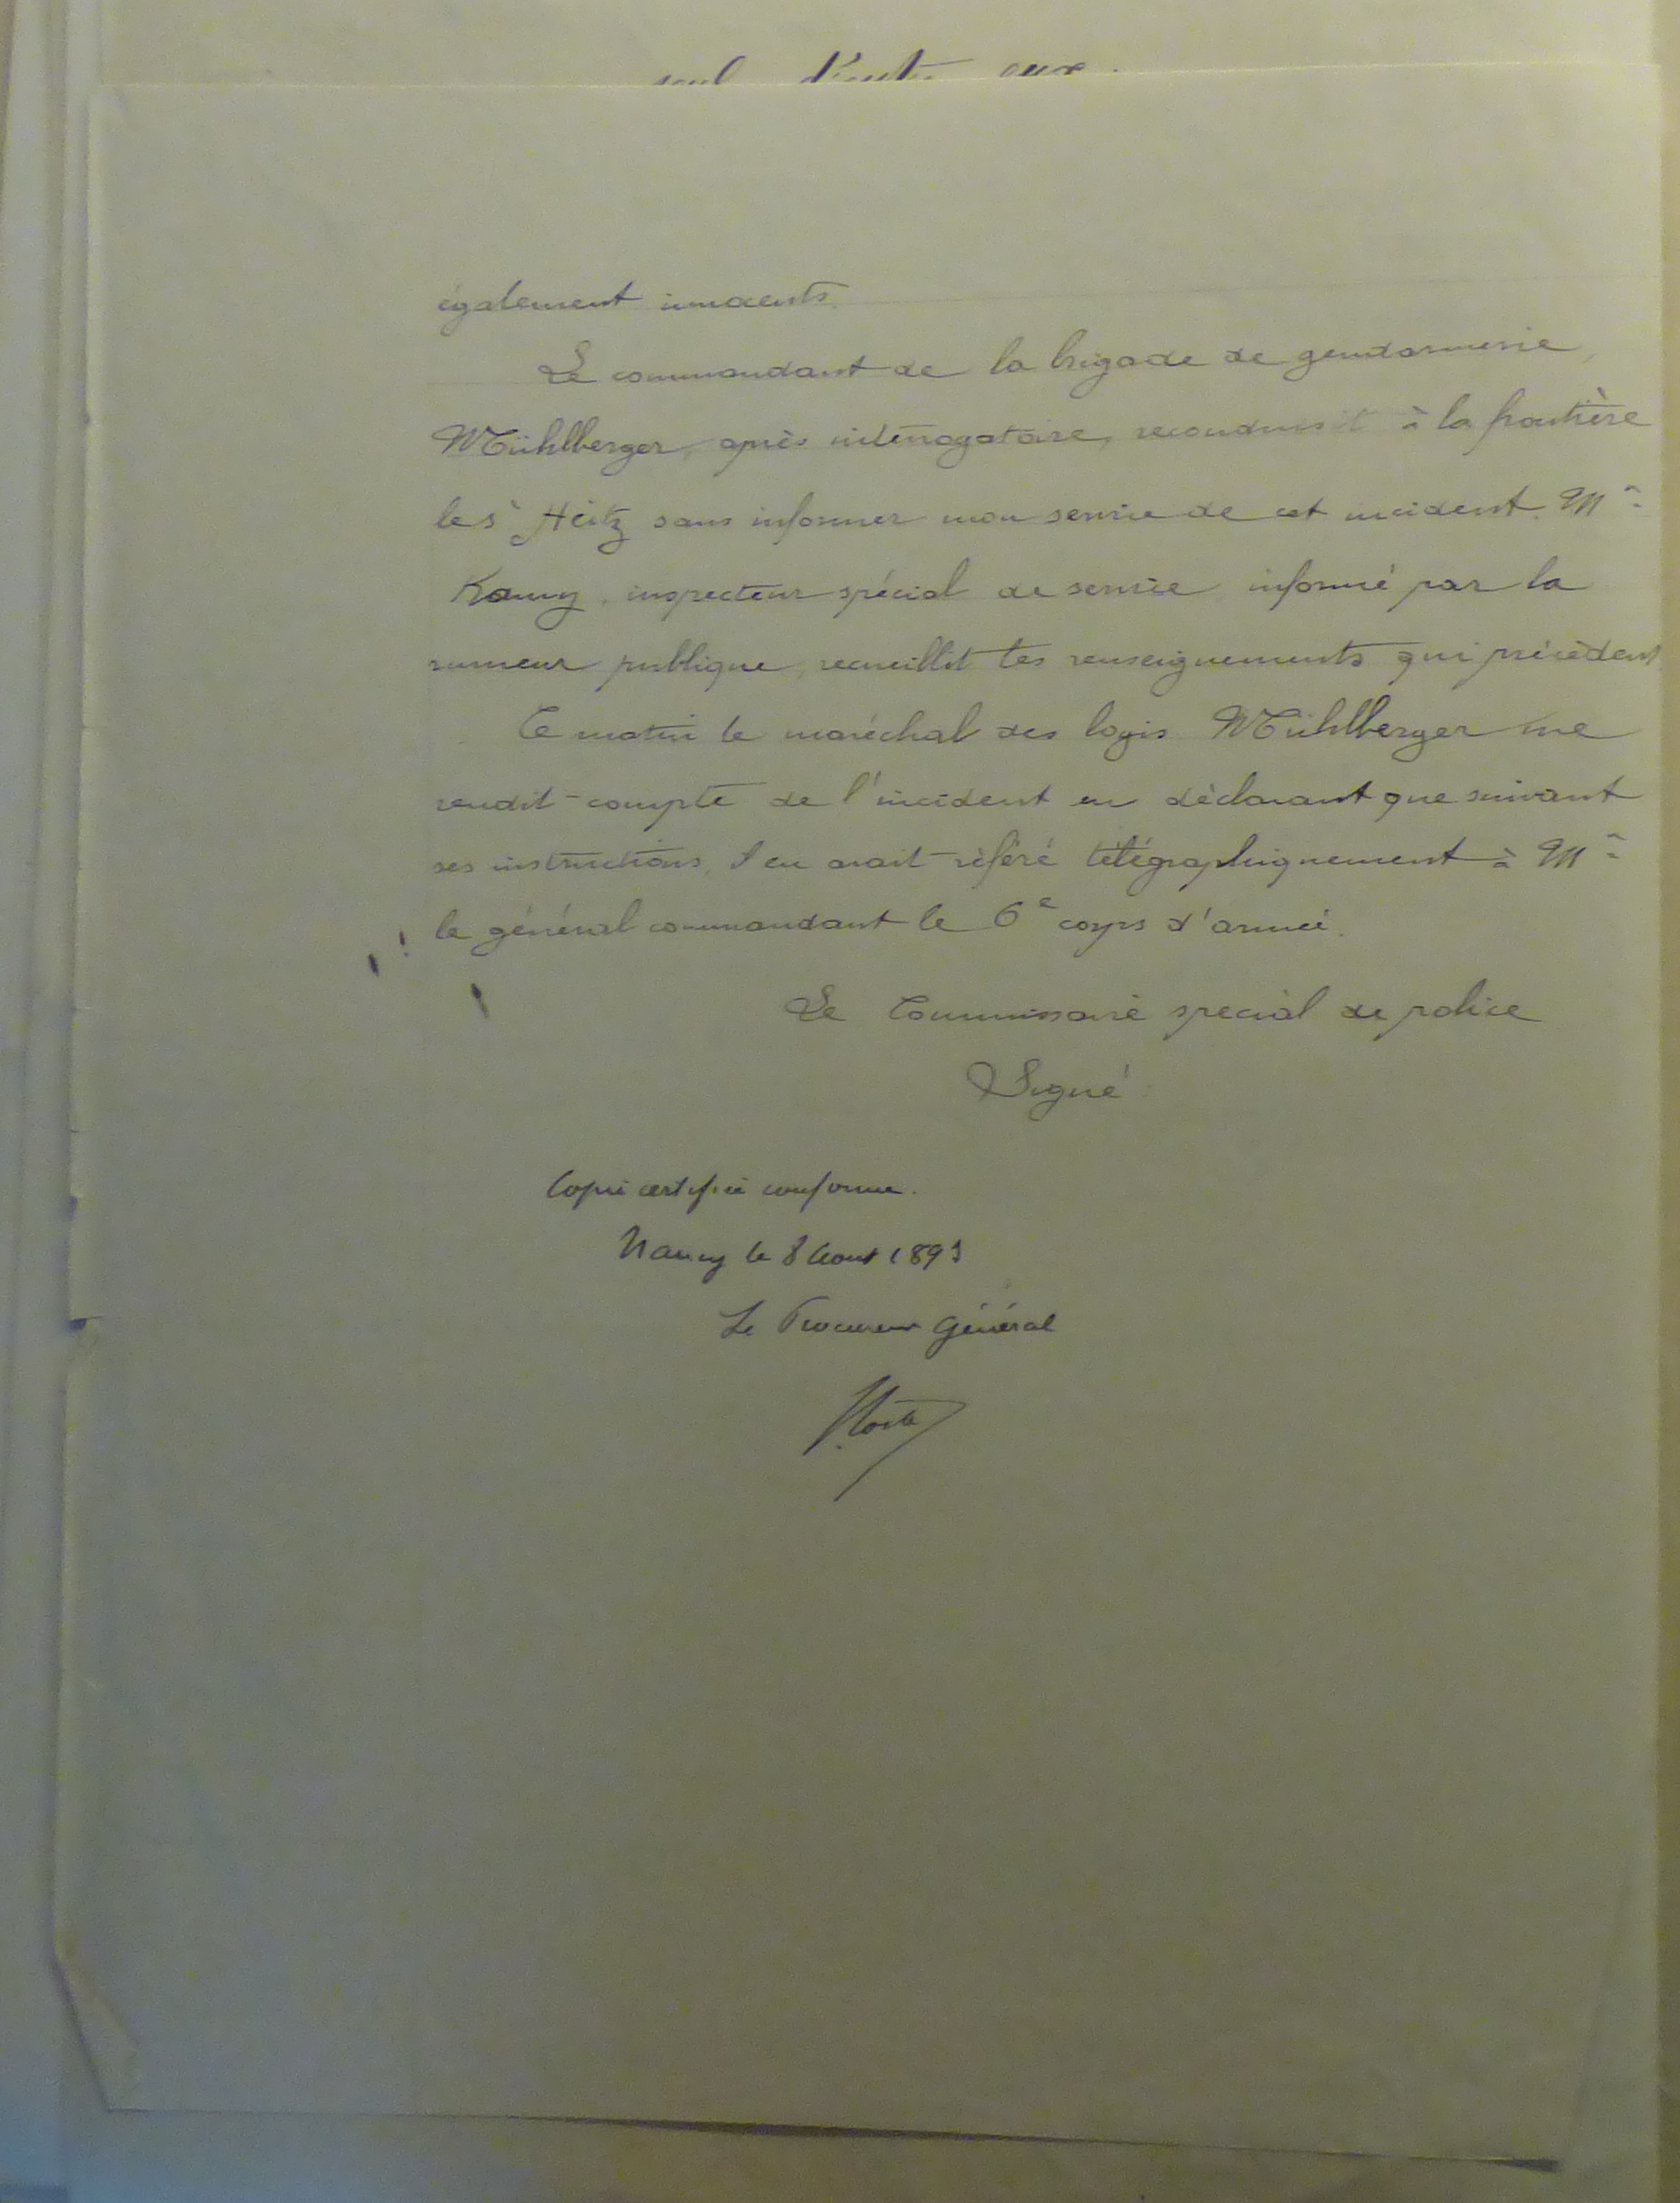 également innocents.
Le commandant de la brigade de gendarmerie,
Mühlberger, après interrogatoire, reconduisit à la frontière
les Heitz sans informer mon service de cet incident. Mr
inspecteur spécial de service informé par la
rumeur publique, recueillit les renseignements qui précèdent
Ce matin le maréchal des logis Mühlberger me
rendit compte de l'incident en déclarant que suivant
ses instructions, il en avait référé télégraphiquement à Mr
le général commandant le 6e corps d'armée.
Le Commissaire spécial de police
Signé
Copie certifiée conforme.
Nancy le 8 Aout 1893
Le Procureur Général